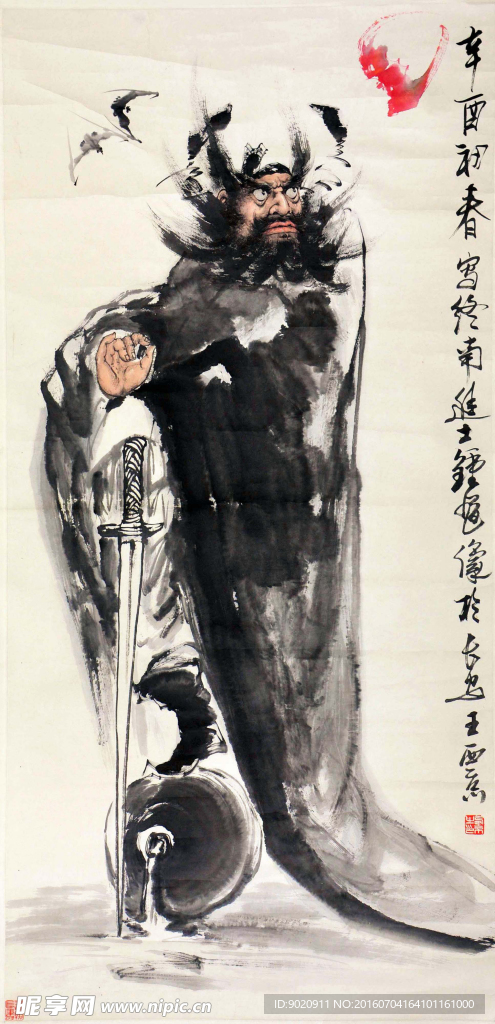 辛酉初春写终南进士鍾馗像於长安王西京
昵享网 www.nipic.cn
ID:9020911 NO:20160704164101161000